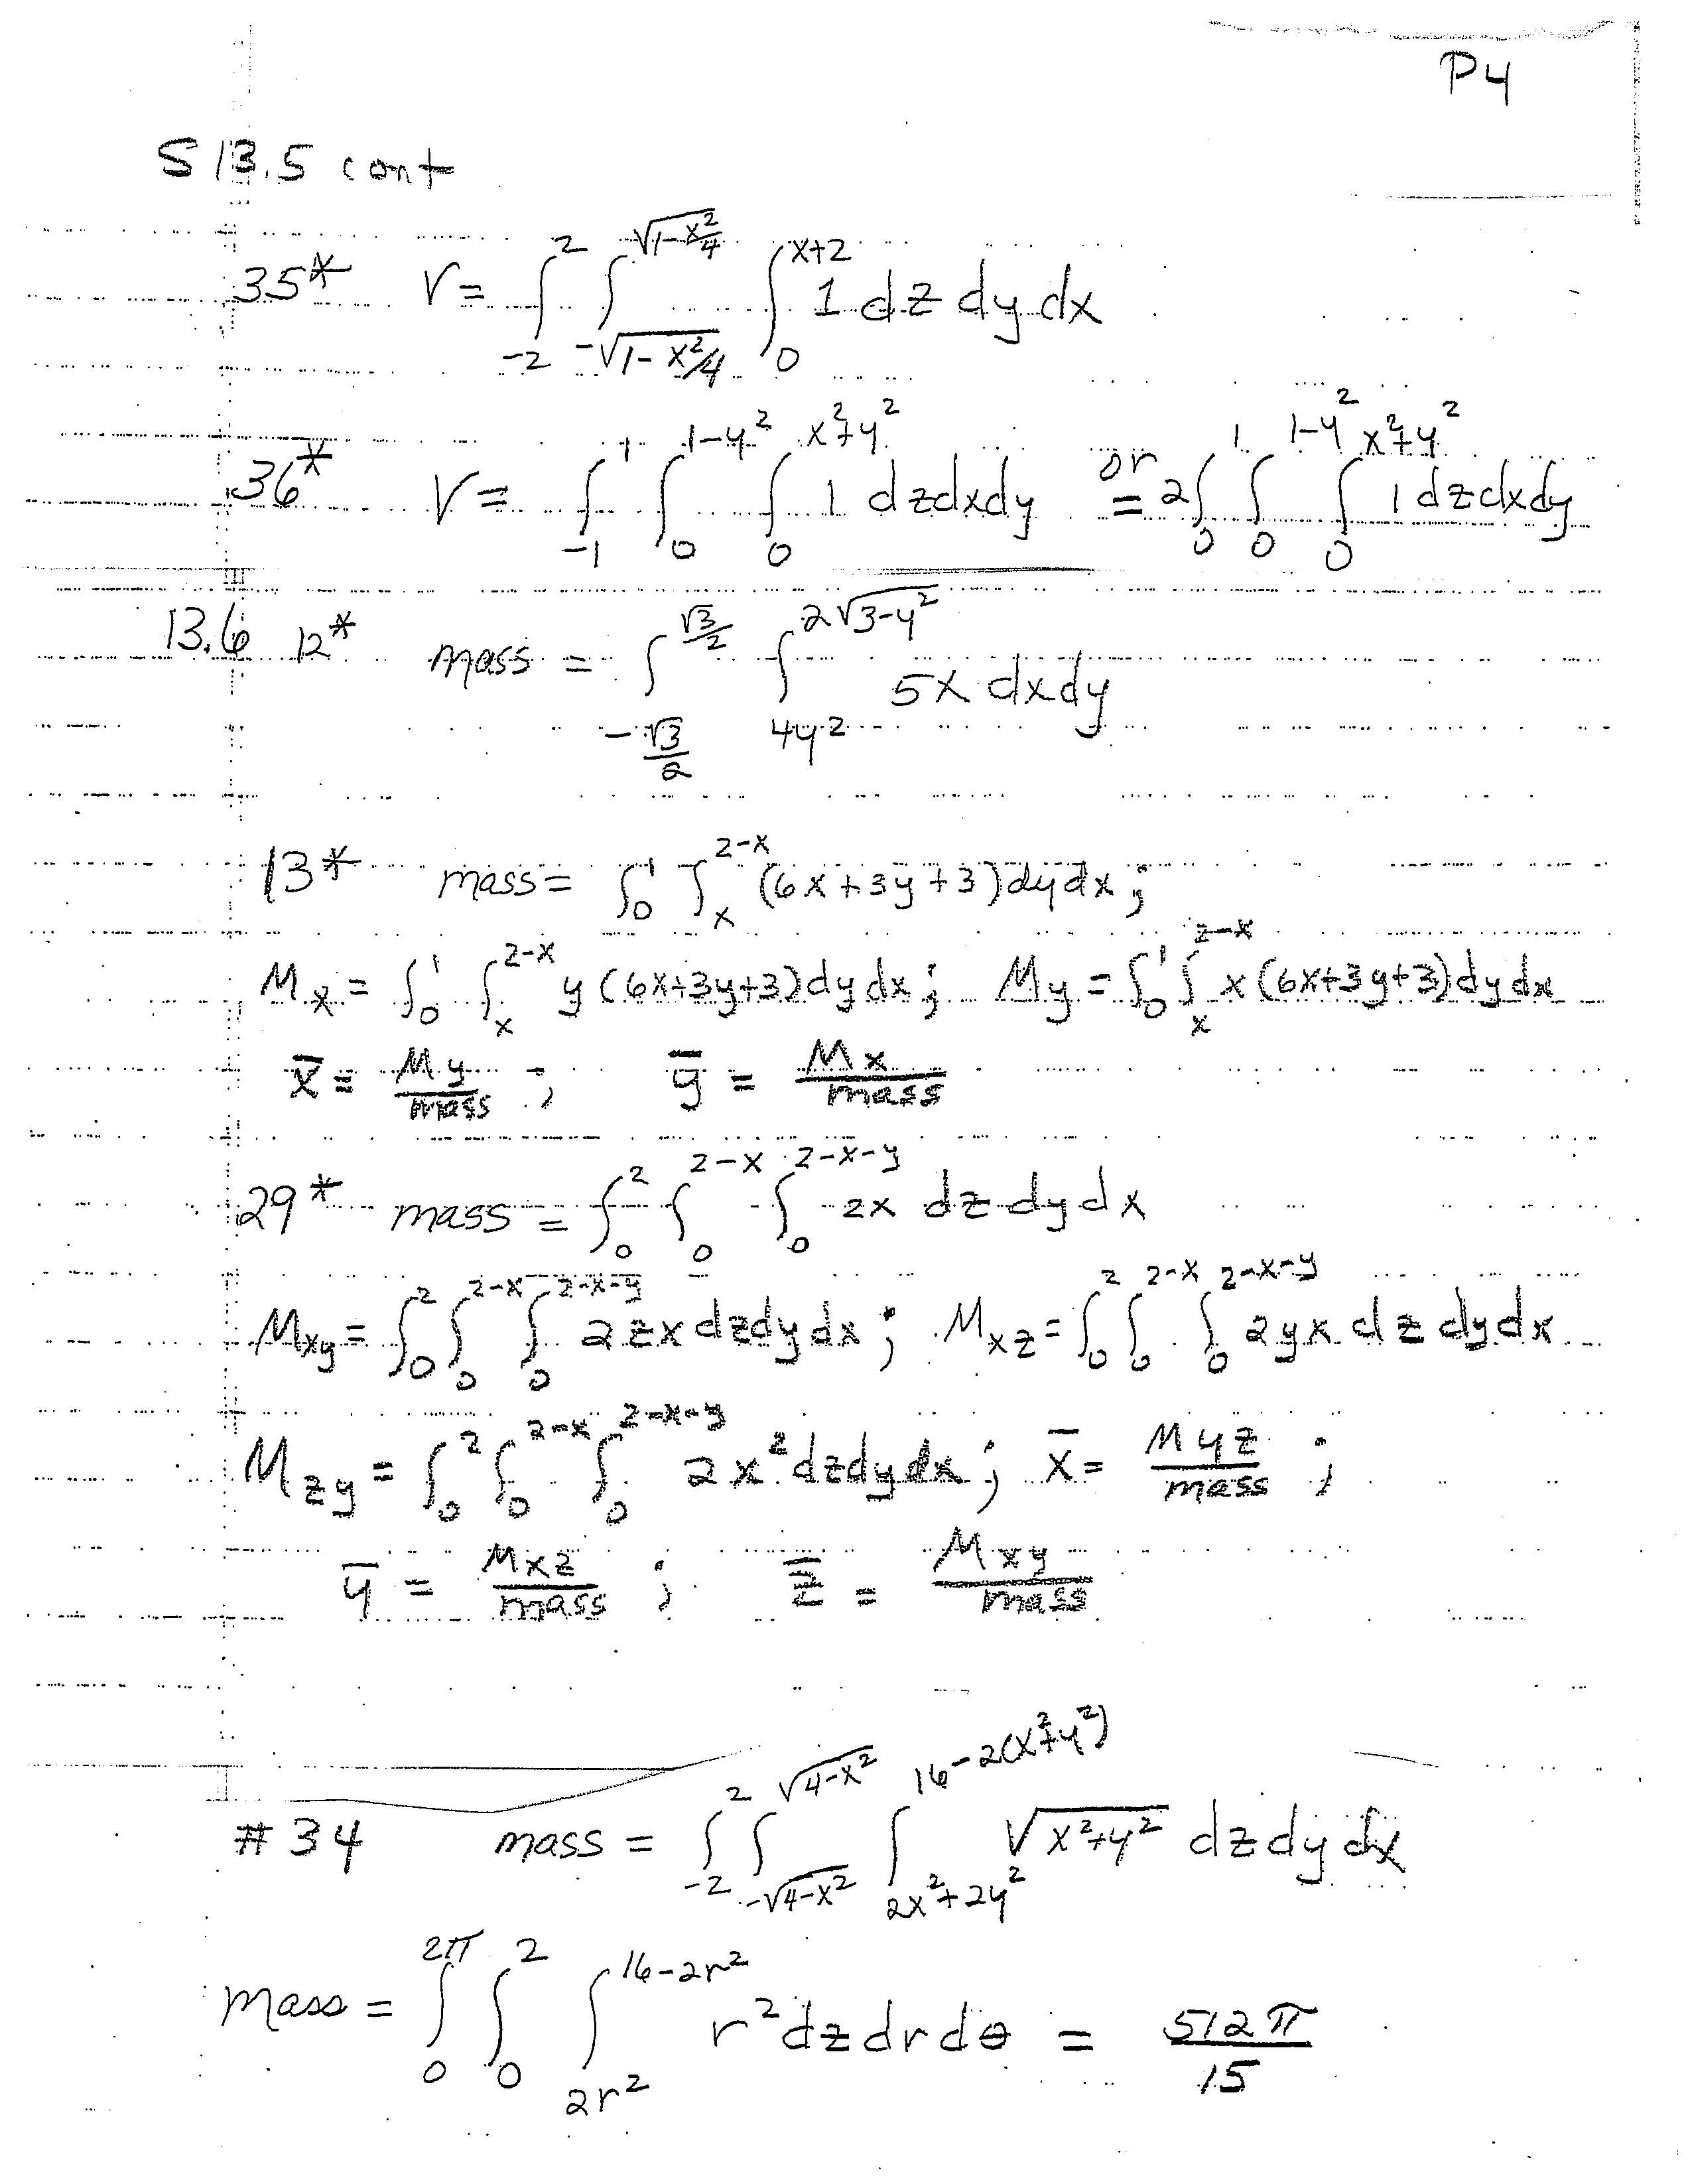 P4
S 13.5 cont
35* V = ∫_{-2}^{2} ∫_{-√(1-x²/4)}^{√(1-x²/4)} ∫_{0}^{x+2} 1 dz dy dx
36* V = ∫_{-1}^{1} ∫_{0}^{1-y²} ∫_{0}^{x²+y²} 1 dzdxdy or = 2∫_{0}^{1} ∫_{0}^{1-y²} ∫_{0}^{x²+y²} 1 dzdxdy
13.6 12* mass = ∫_{-√3/2}^{√3/2} ∫_{4y²}^{2√(3-y²)} 5x dxdy
13* mass = ∫_{0}^{1} ∫_{x}^{2-x} (6x+3y+3)dydx;
M_x = ∫_{0}^{1} ∫_{x}^{2-x} y(6x+3y+3)dydx; M_y = ∫_{0}^{1} ∫_{x}^{2-x} x(6x+3y+3)dydx
x̄ = My/mass ; ȳ = Mx/mass
29* mass = ∫_{0}^{2} ∫_{0}^{2-x} ∫_{0}^{2-x-y} 2x dz dy dx
M_xy = ∫_{0}^{2} ∫_{0}^{2-x} ∫_{0}^{2-x-y} 2zx dzdydx; M_xz = ∫_{0}^{2} ∫_{0}^{2-x} ∫_{0}^{2-x-y} 2yx dz dydx
M_zy = ∫_{0}^{2} ∫_{0}^{2-x} ∫_{0}^{2-x-y} 2x² dzdydx; x̄ = Myz/mass ;
ȳ = Mxz/mass ; z̄ = Mxy/mass
#34 mass = ∫_{-2}^{2} ∫_{-√(4-x²)}^{√(4-x²)} ∫_{2x²+2y²}^{16-2(x²+y²)} √(x²+y²) dz dy dx
Mass = ∫_{0}^{2π} ∫_{0}^{2} ∫_{2r²}^{16-2r²} r² dz dr dθ = 512π/15